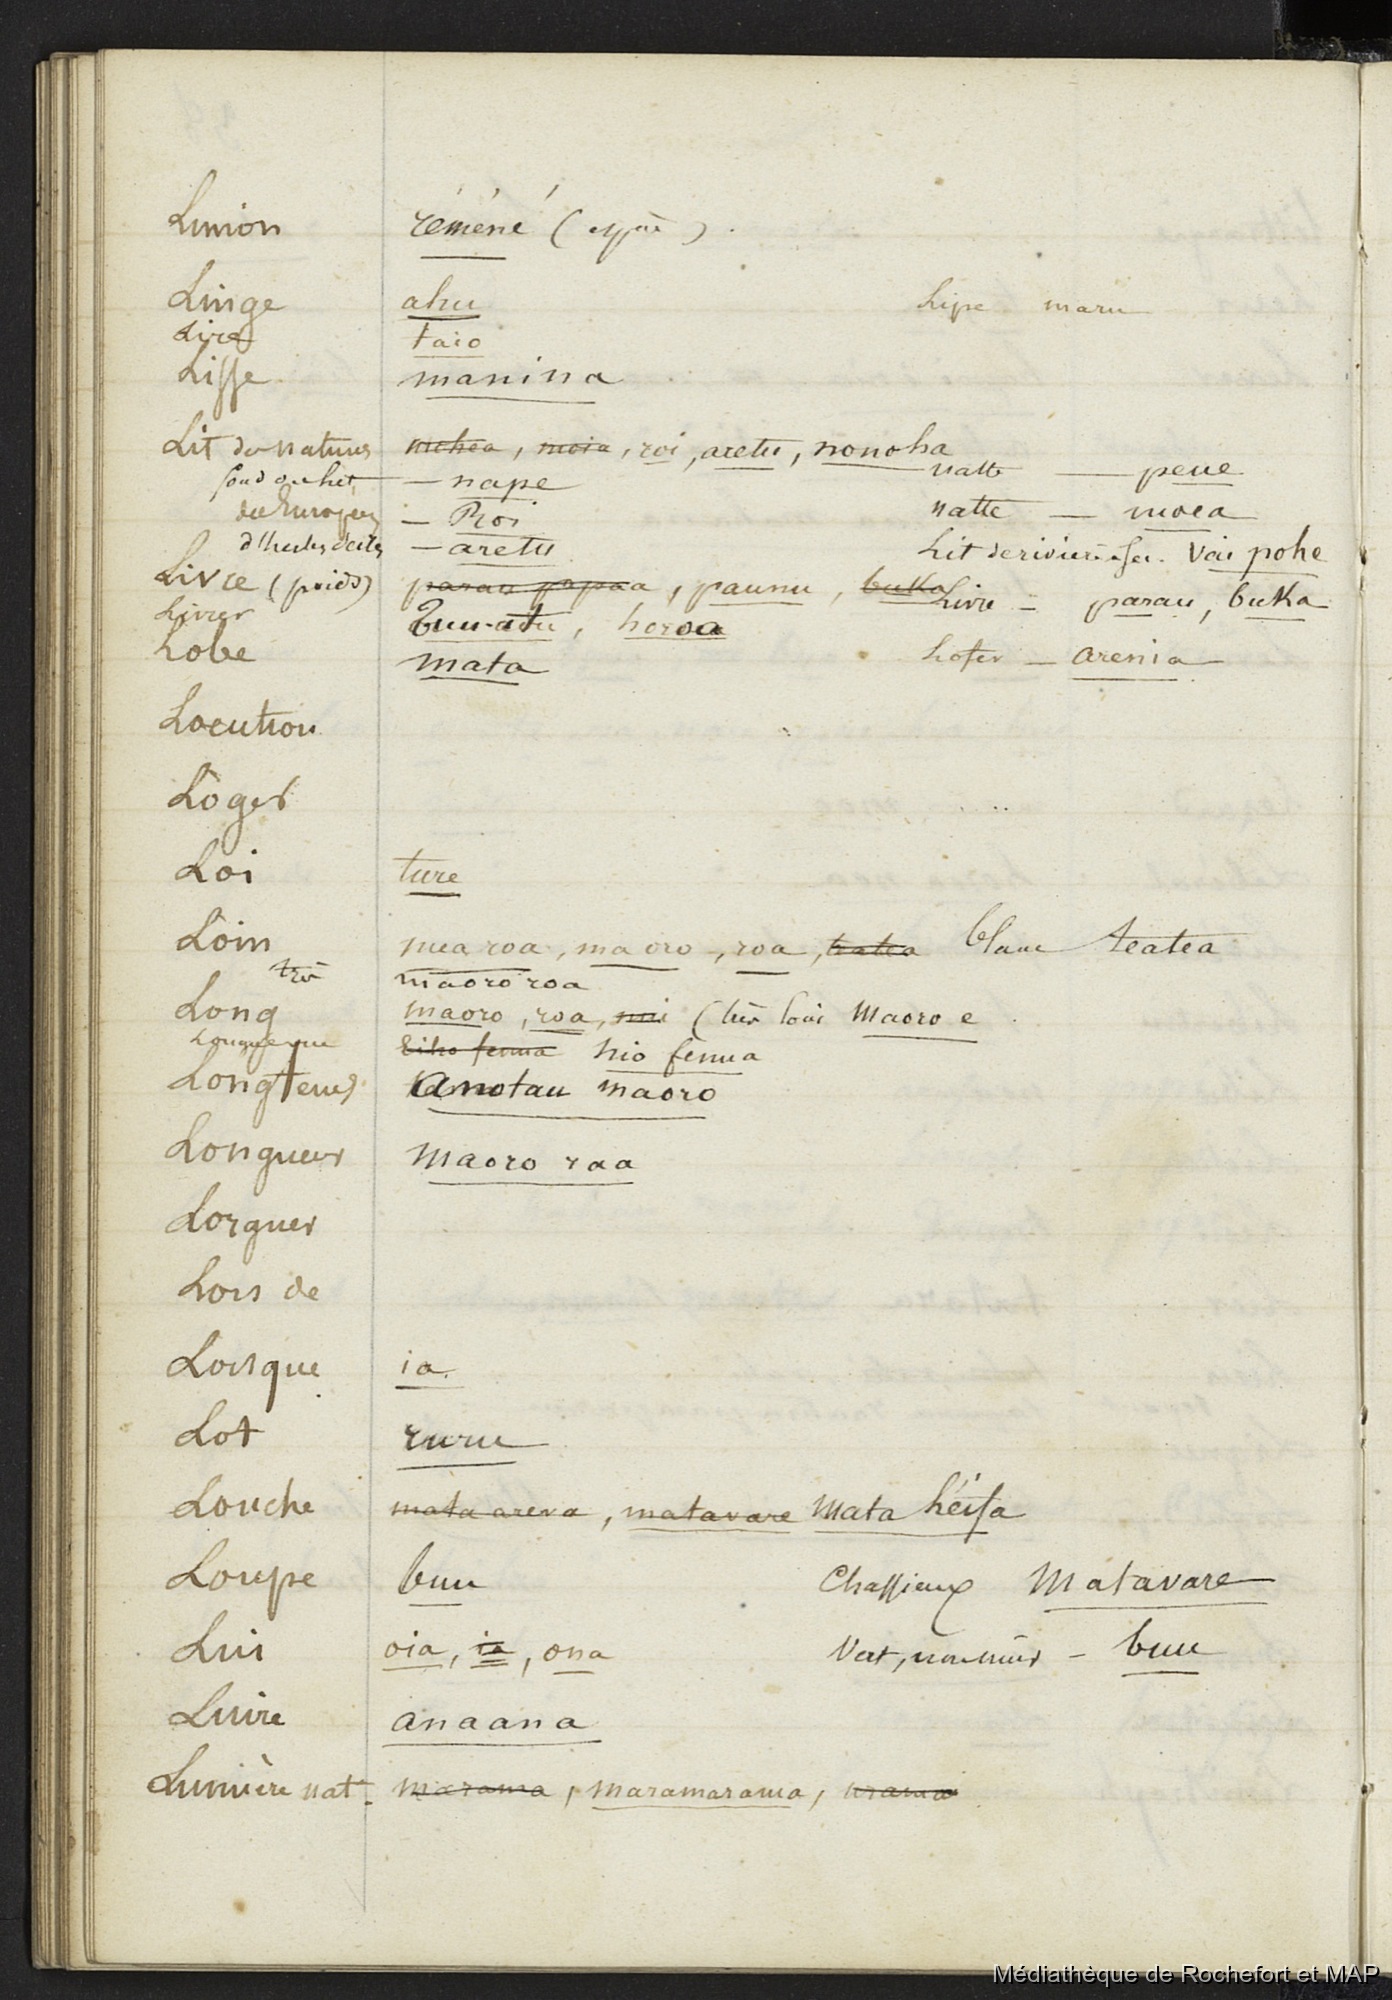 Limon réméné (espèce).
Linge ahu Lipe maru
Lire taio
Lisse manina
Lit de natures mohea, moia, roi, aretu, nonoha
fond du lit — nape natte — peue
des Européens — Roi natte — moea
d'herbes sèches — aretu Lit de rivière Vai pohe
Livre (poids) parau papaa, paunu, buka Livre - parau, buka
Livrer Tuu-atu, horoa
Lobe mata Lofer — arenia
Locution
Loger
Loi ture
Loin mea roa, maoro, roa, teatea blanc teatea
très maoro roa
Long maoro, roa, (très loin Maoro e
Longue vue hio fenua hio fenua
Longtems anotau maoro
Longueur maoro raa
Lorgner
Lors de
Lorsque ia.
Lot ruru
Louche mata areva, matavare Mata héifa
Loupe buu Chassieux Matavare
Lui oia, ia, ona Vert, non mûr - buu
Luire anaana
Lumière nat. marama, maramarama, urama
Médiathèque de Rochefort et MAP